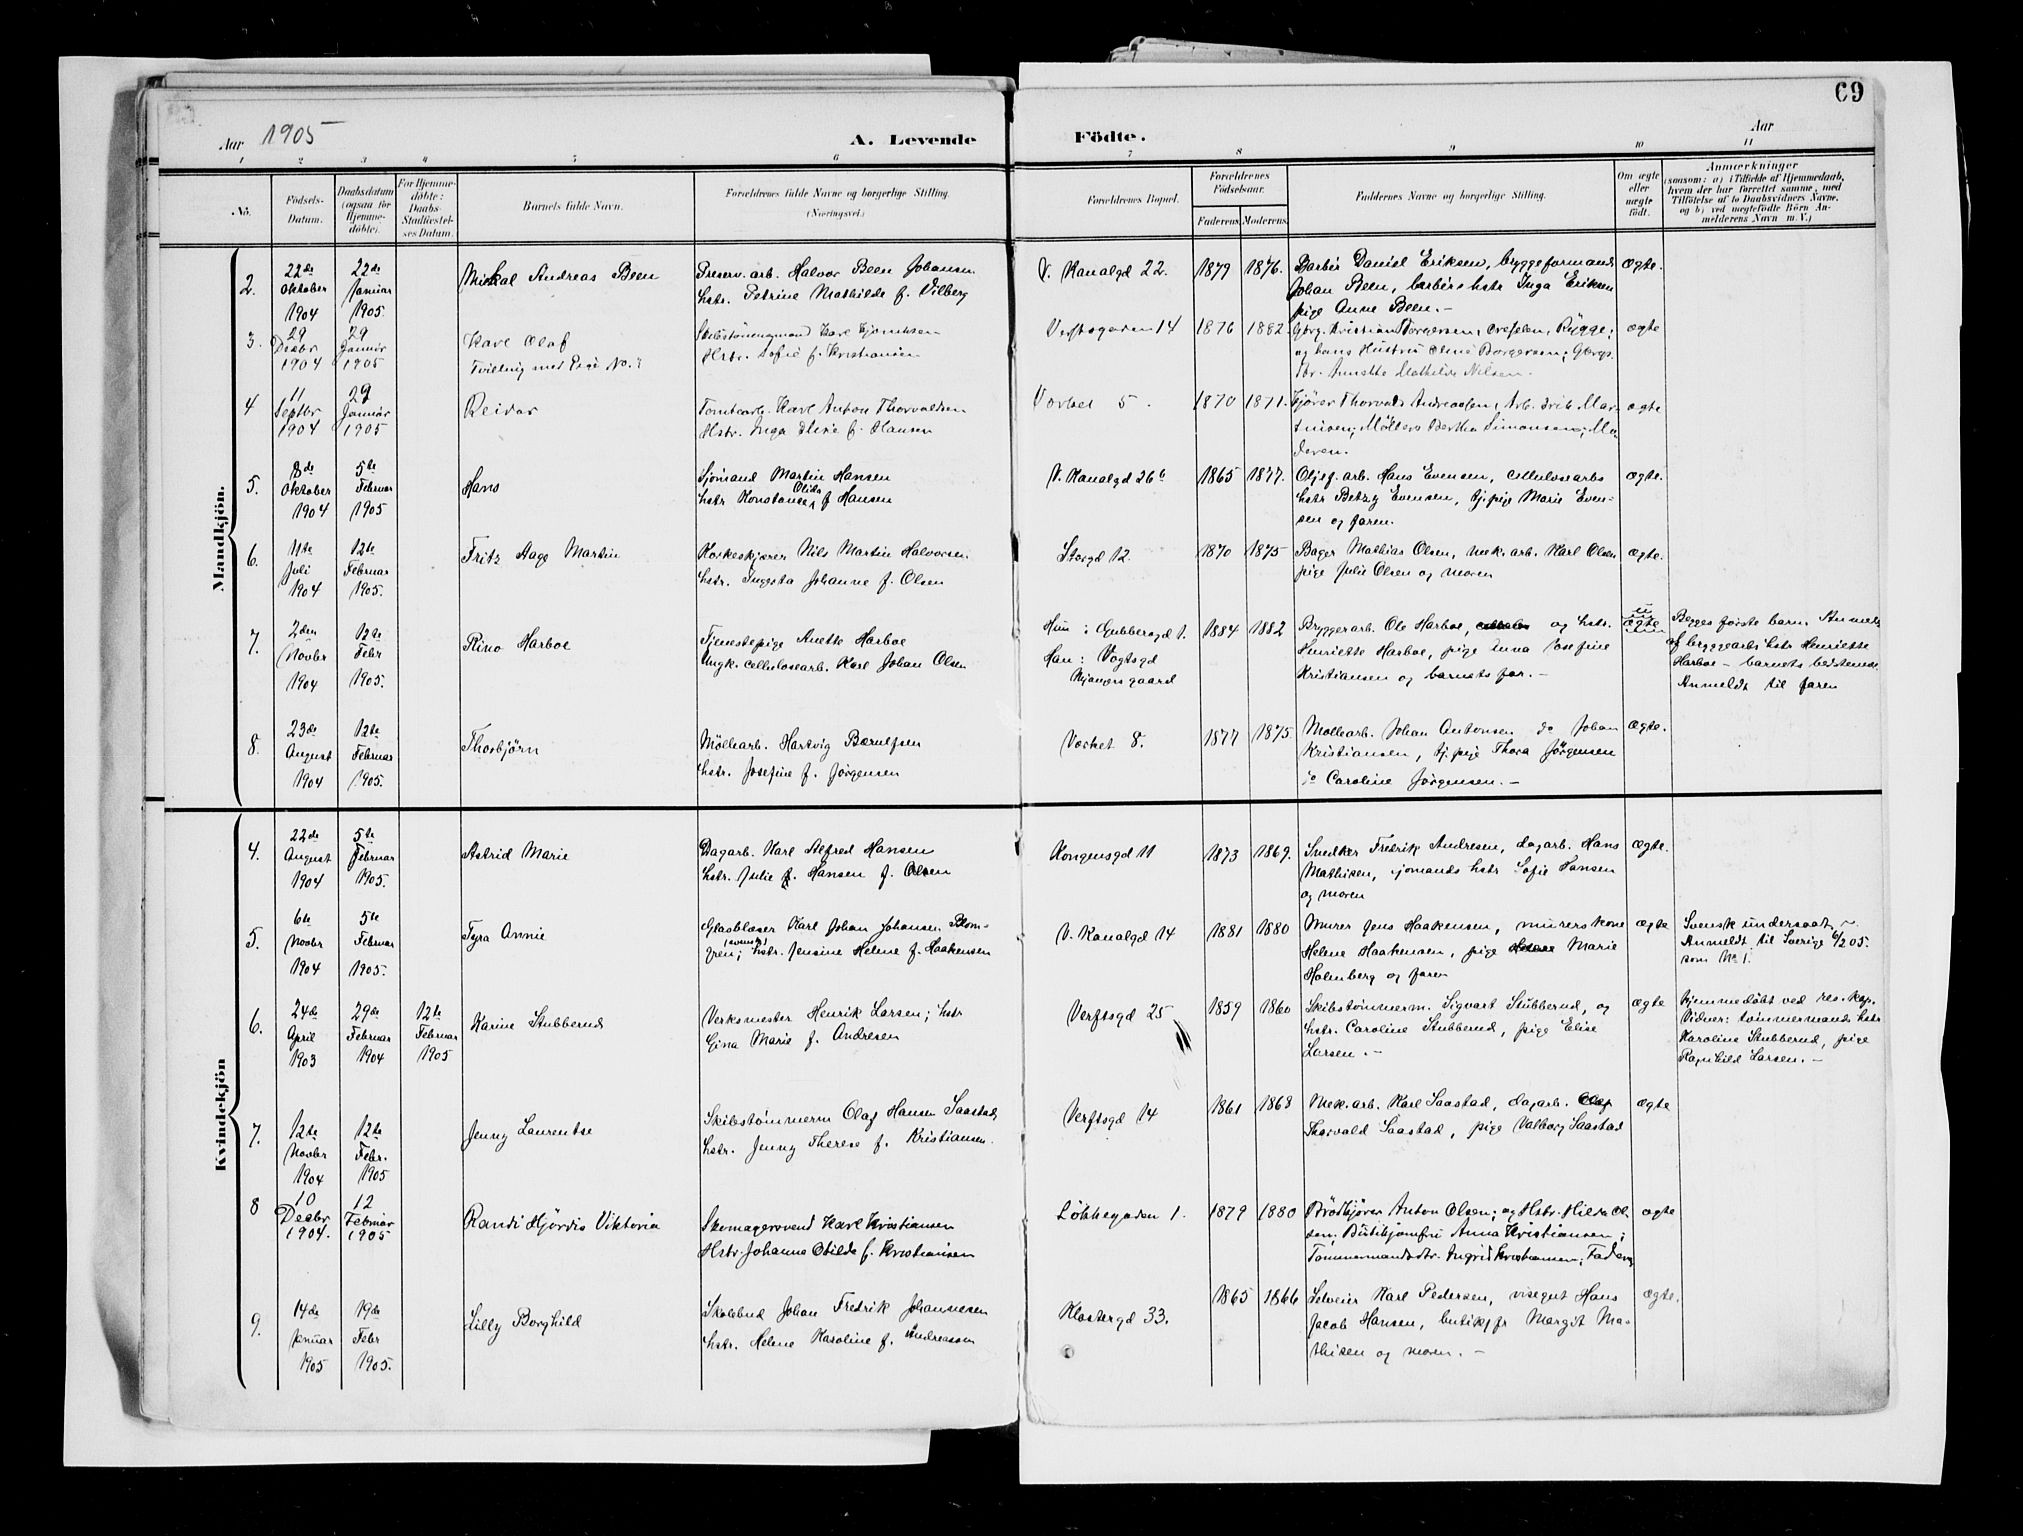 69
Aar 1905
A. Levende Födte.
Aar
1 2 3 4 5 6 7 8 9 10 11
No.
Födsels-Datum.
Daabsdatum (ogsaa for Hjemme-döbte).
For Hjemme-döbte: Daabs-Stadfæstel-ses Datum.
Barnets fulde Navn.
Forældrenes fulde Navne og borgerlige Stilling. (Næringsvei.)
Forældrenes Bopæl.
Forældrenes Födselsaar.
Faderens. Moderens.
Faddernes Navne og borgerlige Stilling.
Om ægte eller uægte födt.
Anmærkninger
(saasom: a) i Tilfælde af Hjemmedaab, hvem der har forrettet samme, med Tilföielse af to Daabsvidners Navne, og b) ved uægtefödte Börn An-melderens Navn m. V.)
Mandkjön.
2. 22de Oktober 1904 22de Januar 1905.
Mickal Andreas Been
Preserv. arb. Halvor Been Johansen
hstr. Petrine Mathilde f. Vilberg
V. Kanalgd 22. 1879 1876.
Barbér Daniel Eriksen, byggeformand
Johan Been, barbérs hstr Inga Eriksen
pige Anne Been. -
ægte.
3. 29 Decbr 1904 29 Januar 1905
Karl Olaf
Tvilling med Pige No.
Hstr. Sofie f. Kristiansen
Verftsgaden 14 1876 1882.
og hans Hustru Borgersen; Gbrgs.
Dtr. Annette Mathilde Nilsen.
ægte
4 11 Septbr 1904 29 Januar 1905
Reidar
Tomtearb. Karl Anton Thorvaldsen
Hstr. Inga Elise f. Hansen
Værket 5. 1870 1871.
Kjører Thorvald Andreassen, Arb.
Møllers Bertha Simonsen; Mo-
deren.
ægte
5. 8de Oktober 1904 5te Februar 1905
Hans
Sjömand Martin Hansen
hstr Konstance Olida f Hansen
V. Kanalgd 26b 1865 1877.
Oljef. arb. Hans Evensen, cellulosearbs
hstr Betzy Evensen, tj. pige Marie Even-
sen og faren.
ægte.
6. 11te Juli 1904 12te Februar 1905.
Fritz Aage Martin
Korkeskjærer Nils Martin Halvorsen
hstr. Ingesta Johanne f. Olsen
Storgd 12 1870 1875
Bager Mathias Olsen, mek. arb. Karl Olsen
pige Julie Olsen og moren
ægte.
7. 2den Novbr 1904 12te Febr 1905.
Rino Harboe
Tjenestepige Anette Harboe
Ungk. cellulosearb. Karl Johan Olsen
Hun i Gubbersgd 1.
Han: Vogtsgd
1884 1882
Bryggerarb. Ole Harboe, og hstr.
Henriette Harboe, pige Anna Josefine
Kristiansen og barnets far. -
uægte
Begges første barn. Anmeldt
af bryggearbs hstr Henriette
Harboe - barnets bedstemor
Anmeldt til faren
8. 23de August 1904 12te Februar 1905.
Thorbjörn
Möllearb. Hartvig Bærulfsen
hstr. Josefine f. Jörgensen
Værket 8. 1877 1875.
Möllearb. Johan Antonsen do Johan
Kristiansen, tj. pige Thora Jörgensen
do Caroline Jörgensen. -
ægte.
Kvindekjön
4. 22de August 1904 5te Februar 1905.
Astrid Marie
Dagarb. Karl Alfred Hansen
hstr. Julie Hansen f. Olsen
Kongensgd 11 1873 1869.
Snedker Fredrik Andresen, dagarb. Hans
Mathisen, sjömands hstr Sofie Hansen
og moren
ægte.
5. 6te Novbr 1904 5te Februar 1905.
Tyra Annie
Glasblæser Karl Johan Johansen Blom-
gren; (svensk) hstr. Jensine Helene f. Haakensen
V. Kanalgd 14 1881 1880
Murer Jens Haakensen, murers kone
Helene Haakensen, pige Marie
Holmberg og faren
ægte
Svensk undersaat, -
Anmeldt til Sverige 6/2 05.
som No 1.
6. 24de April 1903 29de Februar 1904 12te Februar 1905
Karine Stubberud
Verksmester Henrik Larsen; hstr
Gina Marie f. Andresen
Verftsgd 25 1859 1860
Skibstömmerm. Sigvart Stubberud, og
hstr. Caroline Stubberud, pige Elise
Larsen. -
ægte
Hjemmedøbt ved res. kap.
Vidner: tømmermands hstr
Karoline Stubberud, pige
Ragnhild Larsen. -
7. 12te Novbr 1904 12te Febr. 1905
Jenny Laurentse
Skibstömmerm Olaf Hansen Saastad
hstr. Jenny Therese f. Kristiansen.
Verftsgd 14 1861 1868
Mek. arb. Karl Saastad, dagarb. Olaf
Thorvald Saastad, pige Valborg Saastad
ægte
8 10 Decbr 1904. 12 Februar 1905
Randi Hjørdis Viktoria
Skomagersvend Karl Kristiansen
Hstr. Johanne Otilde f. Kristiansen
Løkkegaden 1. 1879 1880
Brødkjører Anton Olsen; og Hstr. Hilda Ol-
sen; Butikjomfru Anna Kristiansen;
Tømmermandsdtr. Ingrid Kristiansen; Faderen
ægte
9. 14de Januar 1905 19de Febr 1905.
Lilly Borghild
Skolebud Johan Fredrik Johannesen
hstr. Helene Karoline f. Andreassen
Klostergd 33. 1865 1866
Selveier Karl Pedersen, visegut Hans
Jacob Hansen, butikjfr Margit Ma-
thisen og moren. -
ægte.